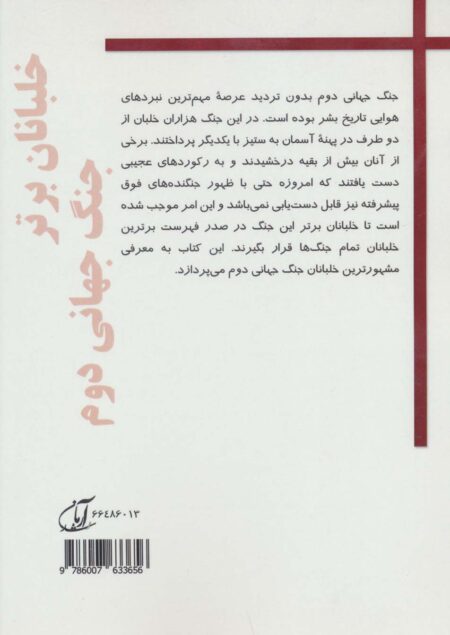 خلبانان برتر
جنگ جهانی دوم
جنگ جهانی دوم بدون تردید عرصهٔ مهم‌ترین نبردهای
هوایی تاریخ بشر بوده است. در این جنگ هزاران خلبان از
دو طرف در پهنهٔ آسمان به ستیز با یکدیگر پرداختند. برخی
از آنان بیش از بقیه درخشیدند و به رکوردهای عجیبی
دست یافتند که امروزه حتی با ظهور جنگنده‌های فوق
پیشرفته نیز قابل دست‌یابی نمی‌باشد و این امر موجب شده
است تا خلبانان برتر این جنگ در صدر فهرست برترین
خلبانان تمام جنگ‌ها قرار بگیرند. این کتاب به معرفی
مشهورترین خلبانان جنگ جهانی دوم می‌پردازد.
۶۶۴۸۶۰۱۳
9 786007 633656